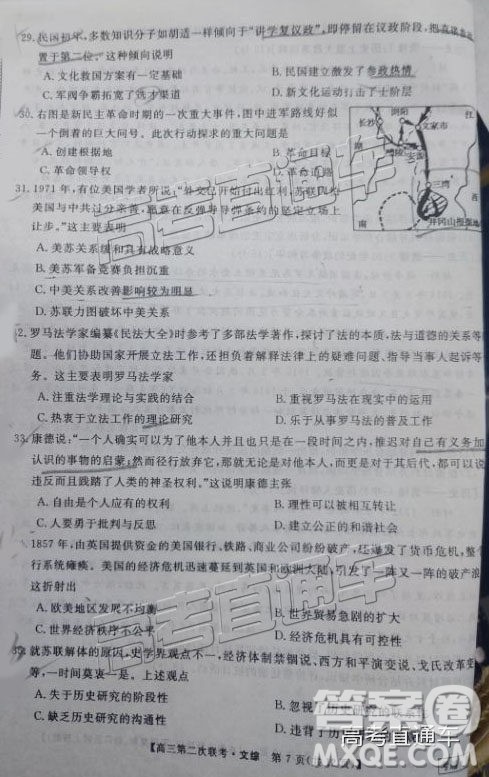 29. 民国初年，多数知识分子如胡适一样倾向于“讲学复议政”，即停留在议政阶段，把
置于第二位。这种倾向说明
A. 文化救国方案有一定基础
B. 民国建立激发了参政热情
C. 军阀争霸拓宽了选才渠道
D. 新文化运动打击了士阶层
30. 右图是新民主革命时期的一次重大事件，图中进军路线好似
一个倒着的巨大问号。此次行动探求的重大问题是
A. 创建根据地
B. 革命目标
C. 革命领导权
D. 革命道路
长沙
浏阳
文家市
江
湖
醴陵
安源
西
三湾
南
井冈山根据地
31. 1971年，有位美国学者所说：“外交已开始付出红利，苏联四松
美国与中共过分亲善，愿意在反弹导弹条约的坚定立场上
让步。”这主要表明
A. 美苏关系缓和具有战略意义
B. 美苏军备竞赛负担沉重
C. 中美关系改善影响较为明显
D. 苏联力图破坏中美关系
2. 罗马法学家编纂《民法大全》时参考了多部法学著作，探讨了法的本质，法与道德的关系等问
题。他们协助国家开展立法工作，还担着解释法律上的疑难问题、指导当事人起诉等
务。这主要表明罗马法学家
A. 注重法学理论与实践的结合
B. 重视罗马法在现实中的运用
C. 热衷于立法工作的理论研究
D. 乐于从事罗马法的普及工作
33. 康德说：“一个人确实可以为了他本人并且也只是在一段时间之内，推迟对自己有义务加
认识的事物的启蒙；然而径行放弃它，那就无论是对他本人，而更是对于其后代，都可以说
违反而且践踏了人类的神圣权利。”这说明康德主张
A. 自由是个人应有的权利
B. 理性可以被相互替代
C. 人应敢于批判与反思
D. 建立公正的和谐社会
1857年，由英国提供资金的美国银行、铁路、商业公司纷纷破产，还爆发了货币危机，整个
行系统瘫痪。美国的经济危机迅速蔓延到英国和欧洲大陆，引发了一阵又一阵的破产浪
这折射出
A. 欧美地区发展不均衡
B. 世界贸易急剧的扩大
C. 世界经济秩序不公平
D. 世界经济具有可控性
35. 就苏联解体的原因，史学界观点不一，经济体制禁锢说、西方和平演变说、戈氏改革变
等，一时间莫衷一是。上述观点
A. 失于历史研究的阶段性
B.
C. 缺乏历史研究的沟通性
D.
【高三第二次联考·文综 第7页
高考直通车
高考直通车
高考直通车